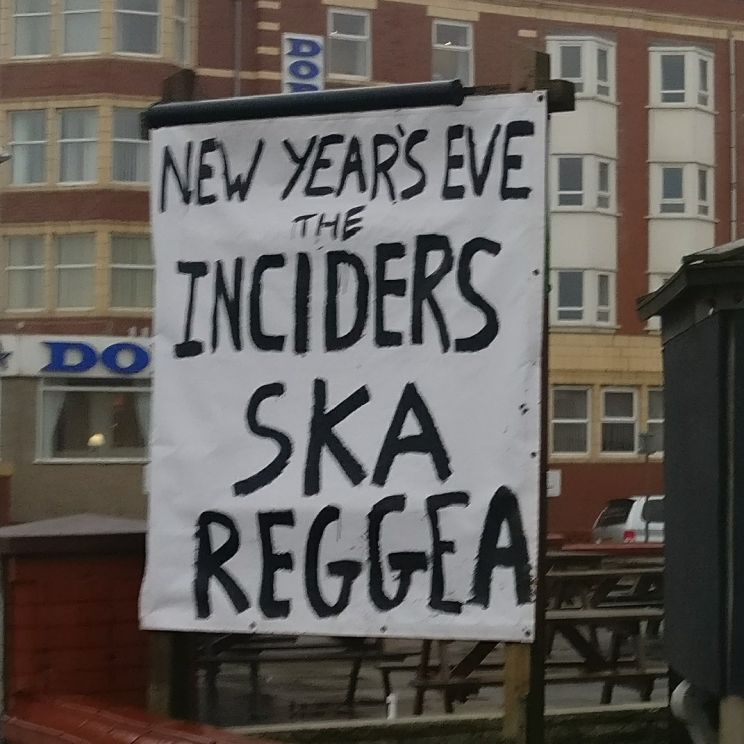 NEW YEAR'S EVE
THE
INCIDERS
SKA
REGGEA
DO